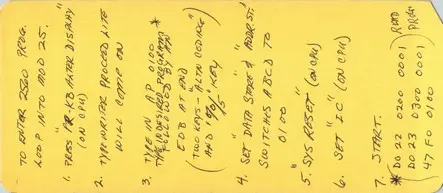 TO ENTER 2530 PROG.
LOOP INTO MOD 25.
1. PRESS "PR-KB ALTER DISPLAY"
(ON CPU)
2. TYPEWRITER PROCEED LITE
WILL COME ON
3. TYPE IN A.P 0100
* TYPE IN DESIRED PROGRAM
FOLLOWED BY AN
EOB AT END
(TWO KEYS - "ALTN CODING"
AND "9/5" KEY)
4. SET "DATA STORE" & "ADDR. ST."
SWITCHES ABCD TO
0100
5. "SYS RESET" (ON CPU)
6. SET "IC" (ON CPU)
7. START.
* DO 22 0200 0001 READ
DO 23 0300 0001 PRGE
47 F0 0100